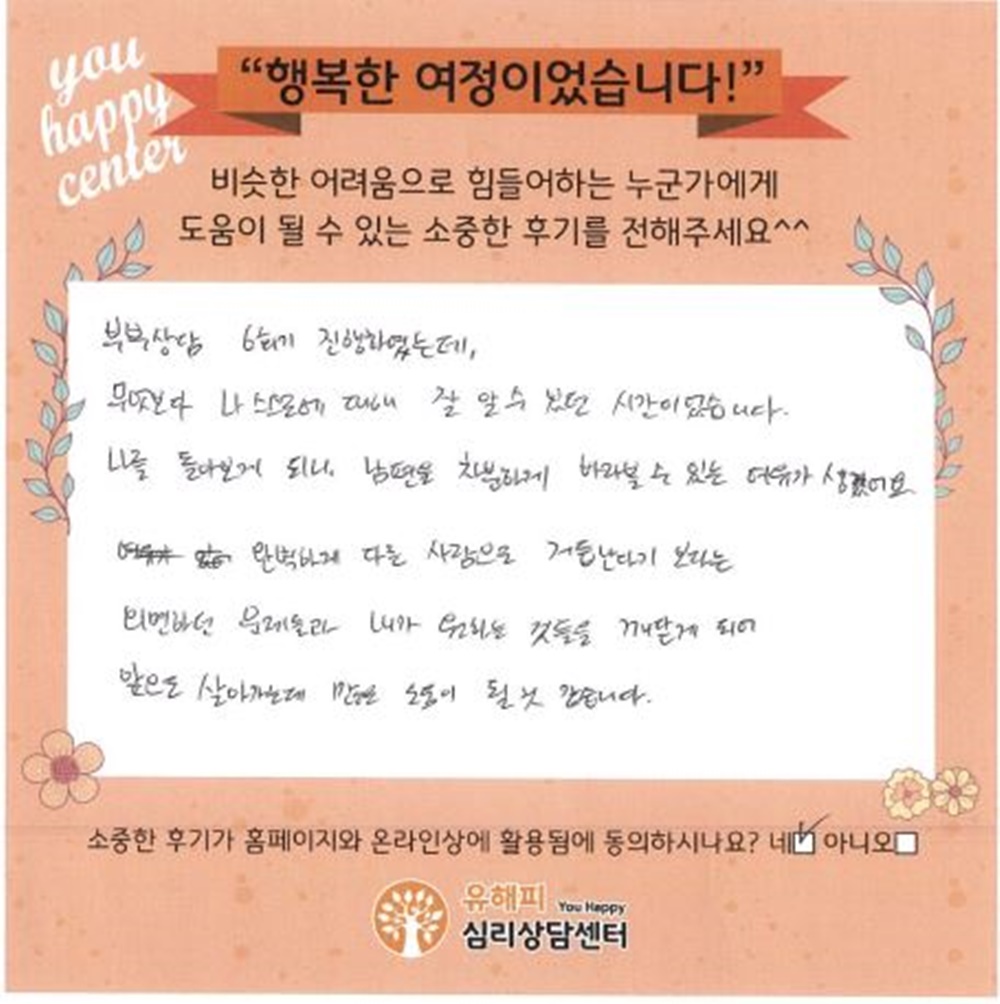 you
happy
center
“행복한 여정이었습니다!”
비슷한 어려움으로 힘들어하는 누군가에게
도움이 될 수 있는 소중한 후기를 전해주세요^^
부부상담 6회기 진행하였는데,
무엇보다 나 스스로에 대해 잘 알 수 있던 시간이었습니다.
나를 돌아보게 되니, 남편을 차분하게 바라볼 수 있는 여유가 생겼어요
완벽하게 다른 사람으로 거듭난다기 보다는
외면하던 문제들과 내가 원하는 것들을 깨닫게 되어
앞으로 살아가는데 많은 도움이 될 것 같습니다.
소중한 후기가 홈페이지와 온라인상에 활용됨에 동의하시나요? 네 아니오
유해피 You Happy
심리상담센터